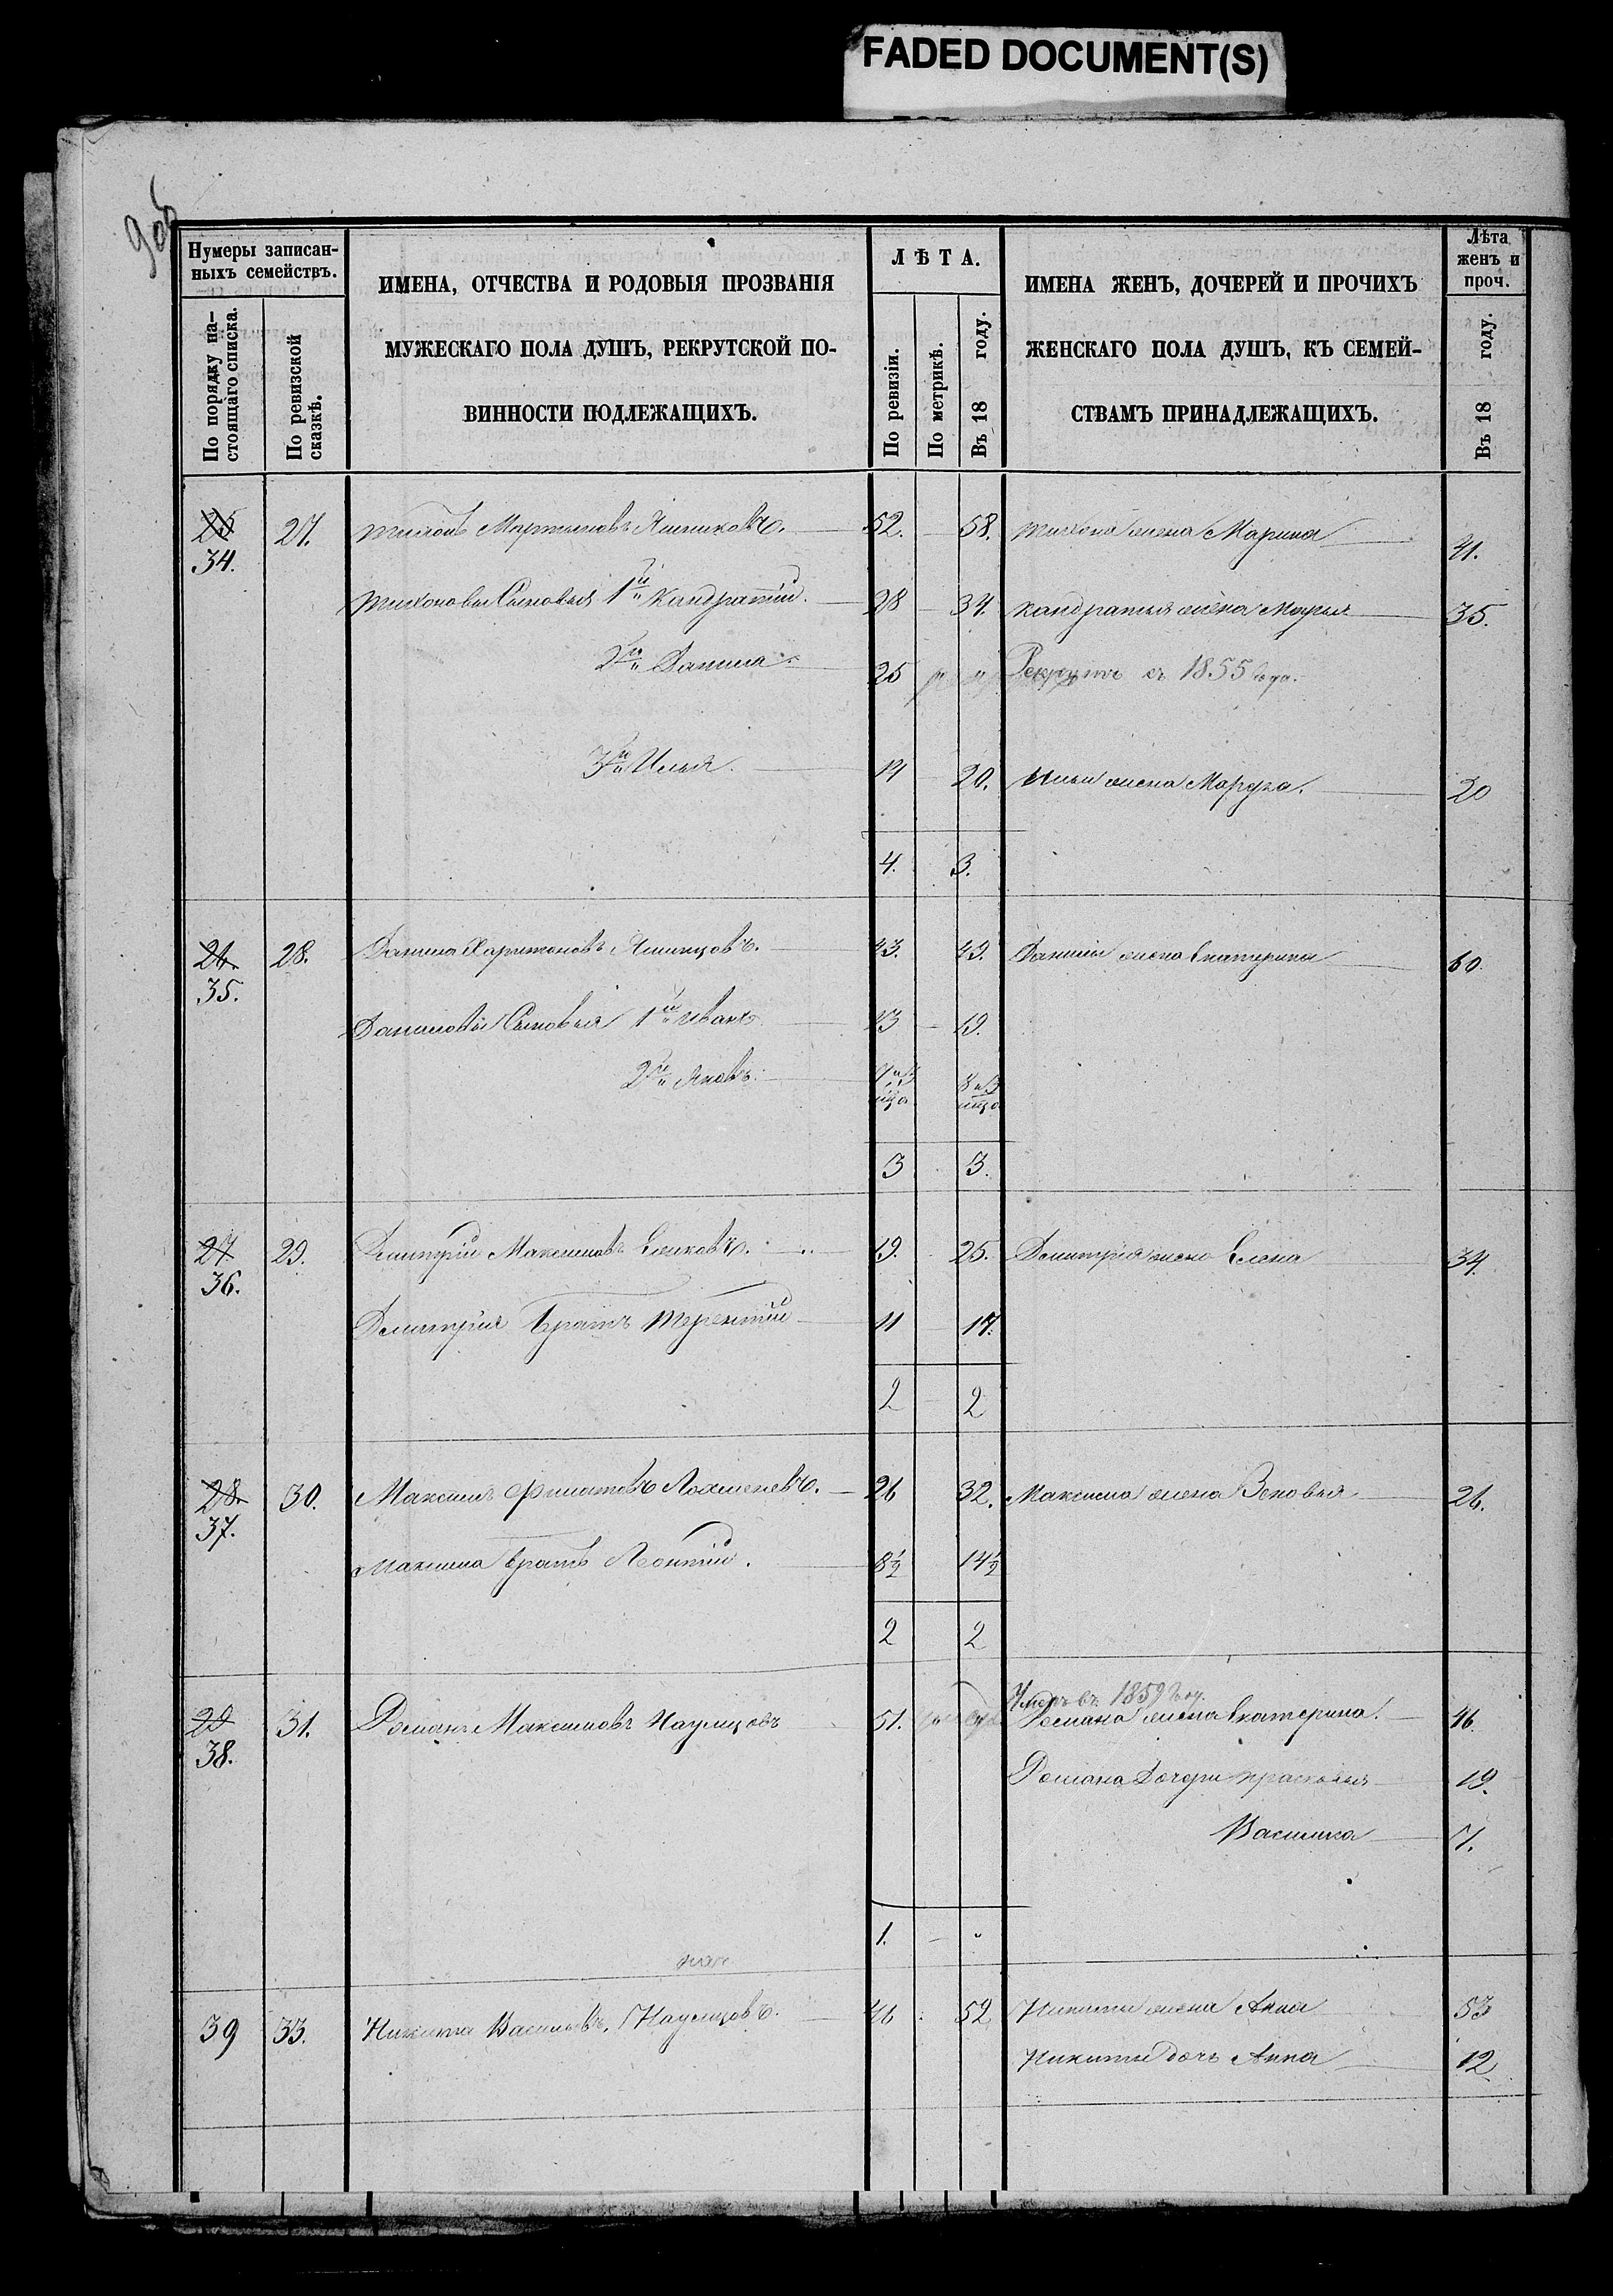 FADED DOCUMENT(S)
9об
Нумеры записан-
ныхъ семействъ.
По порядку на-
стоящаго списка.
По ревизской
сказкѣ.
ИМЕНА, ОТЧЕСТВА И РОДОВЫЯ ПРОЗВАНІЯ
МУЖЕСКАГО ПОЛА ДУШЪ, РЕКРУТСКОЙ ПО-
ВИННОСТИ ПОДЛЕЖАЩИХЪ.
ЛѢТА.
По ревизіи.
По метрикѣ.
Въ 18 году.
ИМЕНА ЖЕНЪ, ДОЧЕРЕЙ И ПРОЧИХЪ
ЖЕНСКАГО ПОЛА ДУШЪ, КЪ СЕМЕЙ-
СТВАМЪ ПРИНАДЛЕЖАЩИХЪ.
Лѣта
женъ и
проч.
Въ 18 году.
25 27. Тихонъ Мартыновъ 52. 58. Тихона жена Марина 41.
34.
Тихоновы Сыновья 1й Кандратий 28 34. Кандратья жена Марья 35.
2й Данила 25 Рекрутъ съ 1855 года.
3й Илья 14 20. Ильи жена 20
4. 3.
26. 28. Данила Харитоновъ 43. 49. Данилы жена Екатерина 60
35.
Даниловы Сыновья 1й Иванъ 13 19.
2й Яковъ
3 3.
27. 29. Дмитрій Максимовъ 19. 25. Дмитрія жена Елена 34.
36.
Дмитрія братъ Терентій 11 17.
2 2
28. 30. Максимъ Филатовъ 26 32. Максима жена Зеновья 26.
37.
Максима братъ Леонтій 8½ 14½
2 2
Умеръ въ 1859 год.
29 31. Романъ Максимовъ Наумцовъ 51. Романа жена Екатерина. 46.
38.
Романа Дочери Прасковья 19.
Василиса 7.
1.
39 33. Никита Васильевъ Наумцовъ. 46 52 Никиты жена Анна 53
Никиты дочь Анна 12